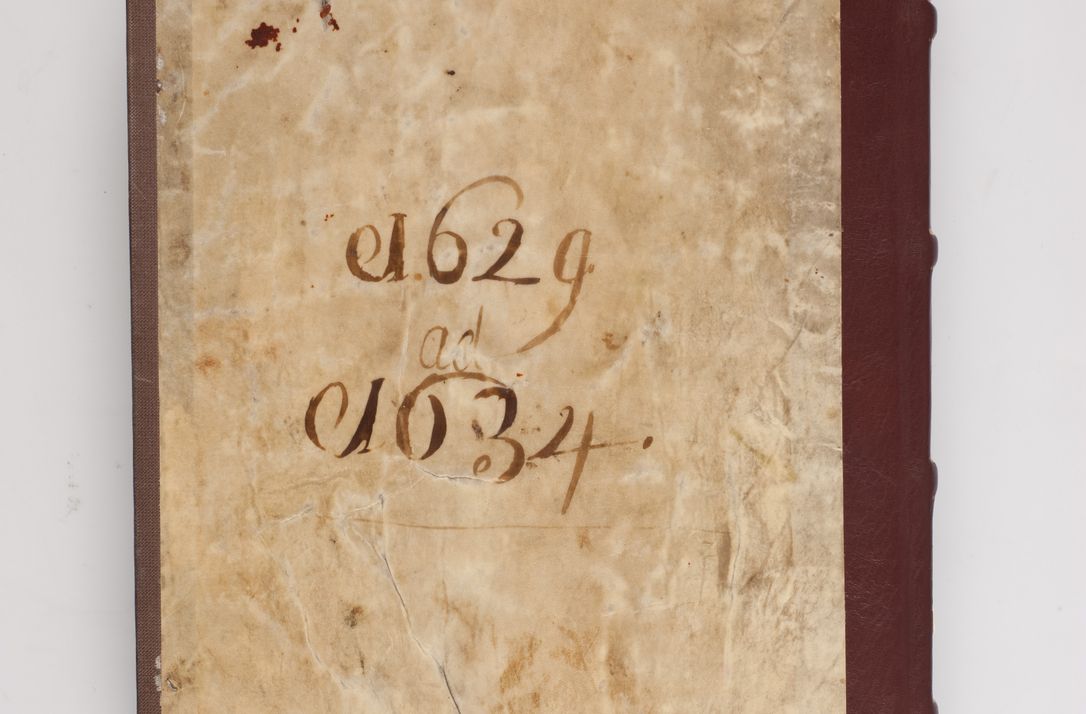 1629
ad
1634.